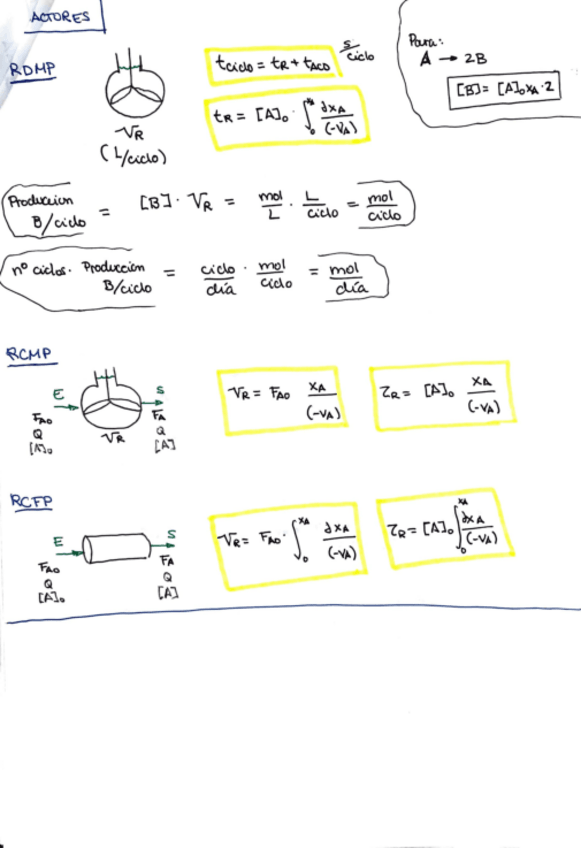 ACTORES
RDMP
tciclo = tR + tACD  s/ciclo
Para:
A → 2B
[B] = [A]₀ xA · 2
tR = [A]₀ · ∫₀^xA dxA/(-VA)
VR
(L/ciclo)
Produccion B/ciclo = [B] · VR = mol/L · L/ciclo = mol/ciclo
nº ciclos · Produccion B/ciclo = ciclo/día · mol/ciclo = mol/día
RCMP
E
S
FAO
Q
[A]₀
VR
FA
Q
[A]
VR = FAO xA/(-VA)
ZR = [A]₀ xA/(-VA)
RCFP
E
S
FAO
Q
[A]₀
FA
Q
[A]
VR = FAO · ∫₀^xA dxA/(-VA)
ZR = [A]₀ ∫₀^xA dxA/(-VA)